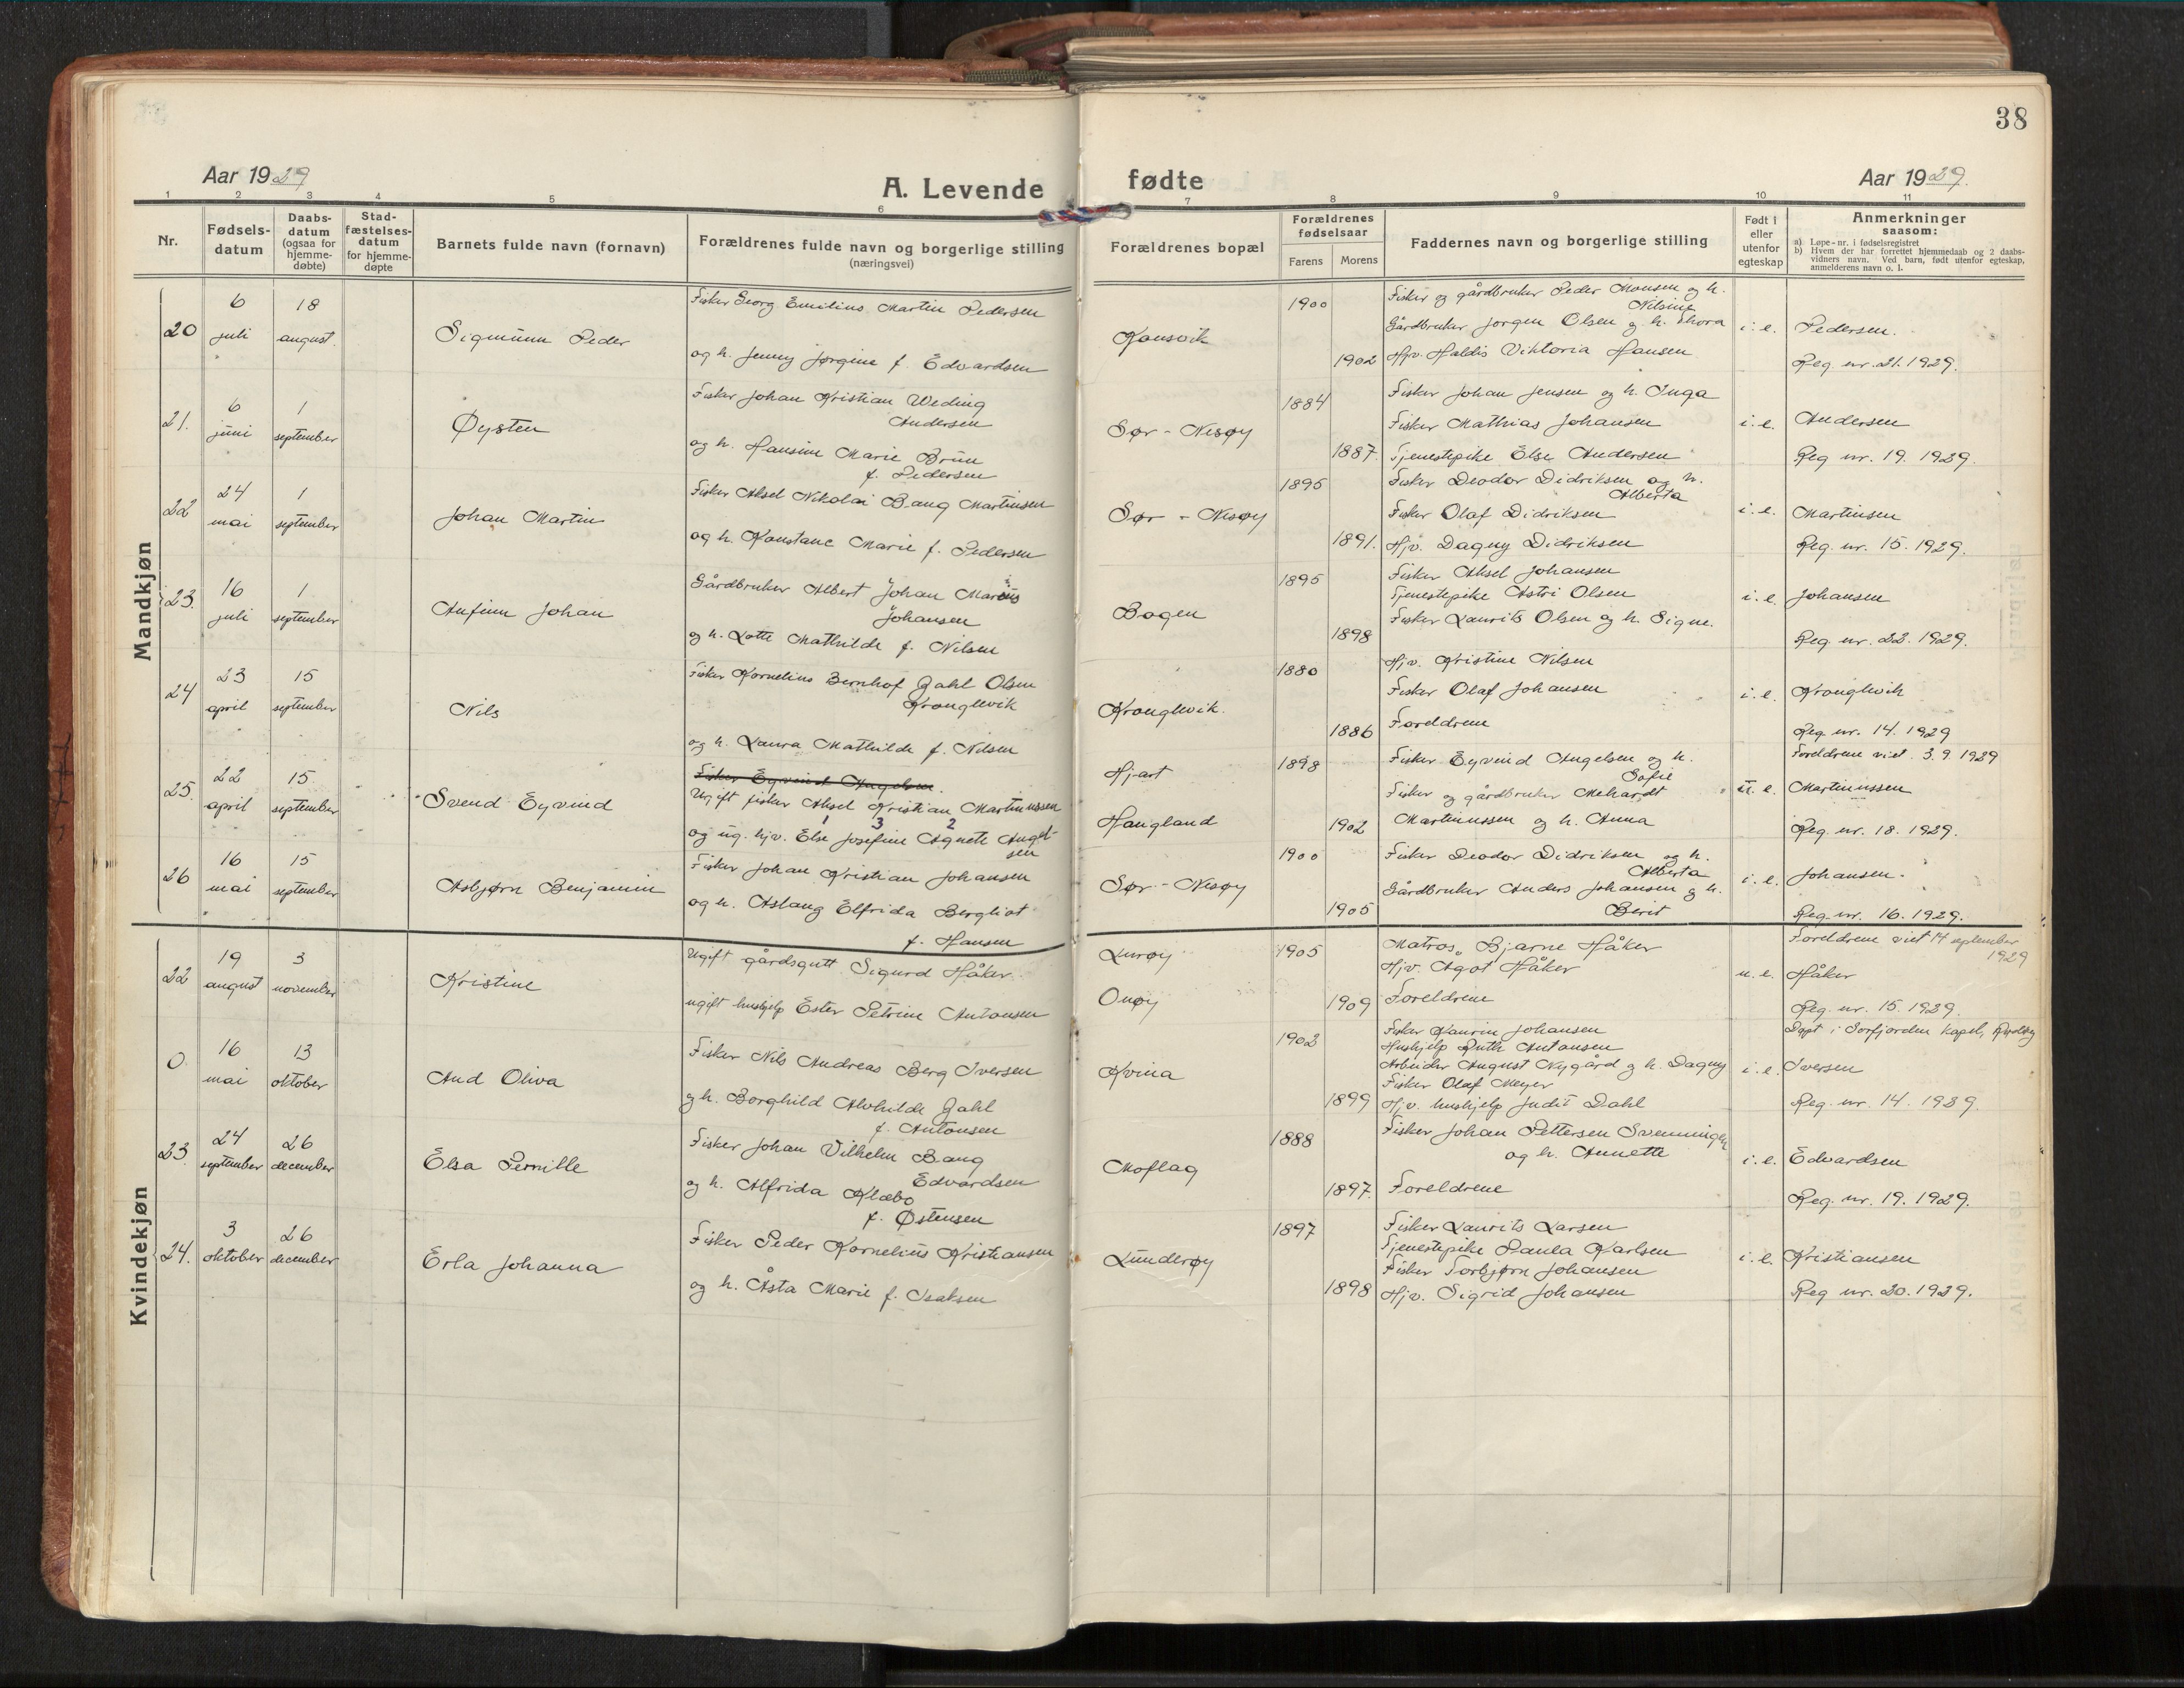 38
Aar 1929
A. Levende
fødte
Aar 1929.
1 2 3 4 5 6 7 8 9 10 11
Nr.
Fødsels-
datum
Daabs-
datum
(ogsaa for
hjemme-
døbte)
Stad-
fæstelses-
datum
for hjemme-
døpte
Barnets fulde navn (fornavn)
Forældrenes fulde navn og borgerlige stilling
(næringsvei)
Forældrenes bopæl
Forældrenes
fødselsaar
Farens Morens
Faddernes navn og borgerlige stilling
Født i
eller
utenfor
egteskap
Anmerkninger
saasom:
a) Løpe-nr. i fødselsregistret
b) Hvem der har forrettet hjemmedaab og 2 daabs-
vidners navn. Ved barn, født utenfor egteskap,
anmelderens navn o. l.
Mandkjøn
20
6
juli
18
august.
Sigmunn Peder
Fisker Georg Emilius Martin Pedersen
og h. Jenny Jørgine f. Edvardsen
Konsvik
1900
1902
Fisker og gårdbruker Peder Monsen og h.
Nilsine
Gårdbruker Jørgen Olsen og h. Thora
Hjv. Haldis Viktoria Hansen
i. e.
Pedersen.
Reg. nr. 21. 1929.
21.
6
juni
1
september
Øysten
Fisker Johan Kristian Weding
Andersen
og h. Hansine Marie Brun
f. Pedersen
Sør - Nesøy
1884
1887.
Fisker Johan Jensen og h. Inga
Fisker Mathias Johansen
Tjenestepike Else Andersen
i. e.
Andersen
Reg nr. 19. 1929.
22
24
mai
1
september
Johan Martin
Fisker Aksel Nikolai Bang Martinsen
og h. Konstanc Marie f. Pedersen
Sør - Nesøy
1895
1891.
Fisker Deodor Didriksen og h.
Alberta
Fisker Olaf Didriksen
Hjv. Dagny Didriksen
i. e.
Martinsen
Reg. nr. 15. 1929.
23.
16
juli
1
september
Anfinn Johan
Gårdbruker Albert Johan Marius
Johansen
og h. Lotte Mathilde f. Nilsen
Bogen
1895
1898
Fisker Aksel Johansen
Tjenestepike Astri Olsen
Fisker Laurits Olsen og h. Signe.
i. e.
Johansen
Reg. nr. 22. 1929.
24
23
april
15
september
Nils
Fisker Kornelius Bernhof Gahl Olsen
Kronglevik
og h. Laura Mathilde f. Nilsen
Kronglevik.
1880
1886
Hjv. Kristine Nilsen
Fisker Olaf Johansen
Foreldrene
i. e.
Kronglevik
Reg. nr. 14. 1929
25.
22
april
15
september
Svend Eyvind
Fisker Eyvind Angelsen.
Ugift fisker Aksel Kristian Martinussen
1 3 2
og ug. hjv. Else Josefine Agnete Angel-
sen
Hjart
Haugland
1898
1902
Fisker Eyvind Angelsen og h.
Sofie
Fisker og gårdbruker Mehardt
Martinussen og h. Anna
u. e.
Foreldrene viet. 3. 9. 1929
Martinussen
Reg. nr. 18. 1929.
26
16
mai
15
september
Asbjørn Benjamin
Fisker Johan Kristian Johansen
og h. Aslaug Elfrida Bergliot
f. Hansen
Sør - Nesøy
1900
1905
Fisker Deodor Didriksen og h.
Alberta
Gårdbruker Anders Johansen og h.
Berit
i. e.
Johansen.
Reg. nr. 16. 1929.
Kvindekjøn
22
19
august
3
november
Kristine
Ugift gårdsgutt Sigurd Håker.
ugift hushjelp Ester Petrine Antonsen
Lurøy
Onøy
1905
1909
Matros Bjarne Håker
Hjv. Agot Håker
Foreldrene
u. e.
Foreldrene viet 14 september
1929
Håker
Reg. nr. 15. 1929.
0.
16
mai
13
oktober
Aud Oliva
Fisker Nils Andreas Berg Iversen
og h. Borghild Alvhilde Gahl
f. Antonsen
Kvina
1902
1899
Fisker Kaurin Johansen
Hushjelp Ruth Antonsen
Arbeider August Nygård og h. Dagny
Fisker Olaf Meyer
Hjv. hushjelp Judit Dahl
i. e.
Døpt i Sørfjorden kapel, Rødøy
Iversen
Reg. nr. 14. 1929.
23.
24
september
26
december
Elsa Pernille
Fisker Johan Vilhelm Bang
Edvardsen
og h. Alfrida Klæbo
f. Østensen
Moflag
1888
1897.
Fisker Johan Pettersen Svenningsen
og h. Annette
Foreldrene
i. e.
Edvardsen
Reg. nr. 19. 1929.
24.
3
oktober
26
december
Erla Johanna
Fisker Peder Kornelius Kristiansen
og h. Åsta Marie f. Isaksen
Lunderøy
1897
1898
Fisker Laurits Larsen
Tjenestepike Paula Karlsen
Fisker Torbjørn Johansen
Hjv. Sigrid Johansen
i. e.
Kristiansen
Reg nr. 20. 1929.